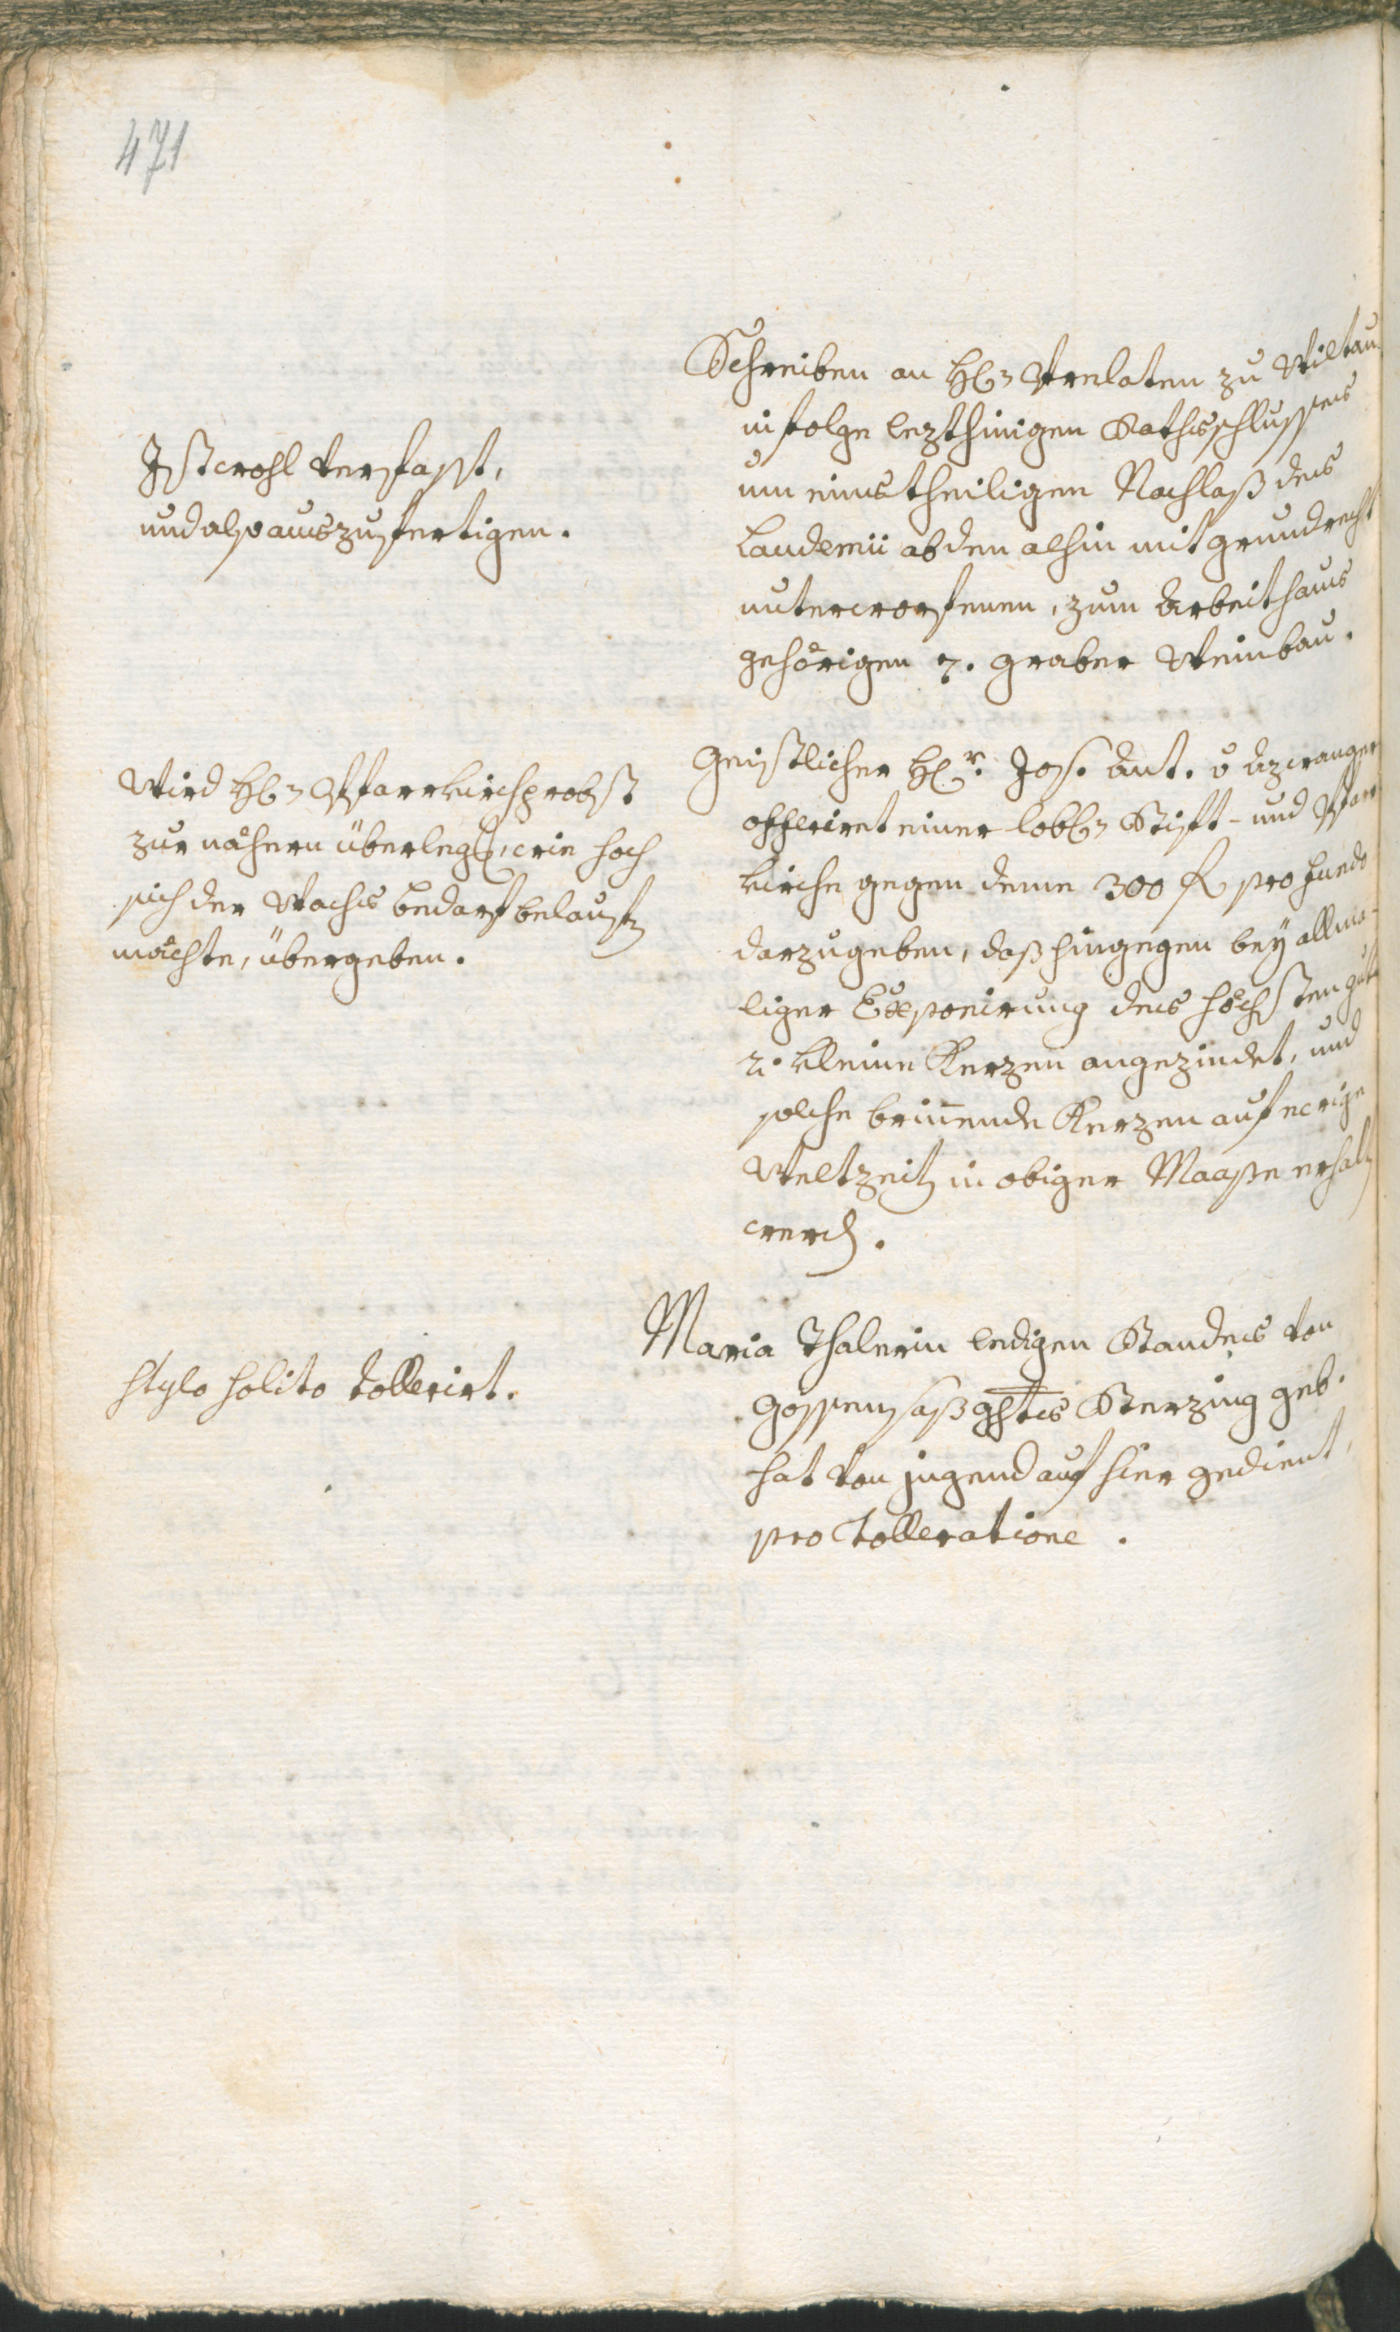 471
Schreiben an H: Prelaten zu Wiltau
in folge lezthinigen Rathsschlusses
um einestheiligen Nachlaß des
Laudemii ab den alhin mit grundrecht
unterworfenen, zum Arbeithaus
gehörigen 7. graber Weinbau.
Ist wohl verfasst,
und also auszufertigen.
Geistlicher H:r Jos. Ant. v Azwanger
offeriret einer lobl: Stift- und Pfarr
kirche gegen deme 300 f pro fundo
darzugeben, daß hingegen bey allma-
liger Exponierung des höchsten gut
2. kleine Kerzen angezindet, und
solche brinende Kerzen auf ewige
Weltzeit in obiger Maaße erhalt
werd.
Wird H: Pfarrkirchprobst
zur nähern überleg, wie hoch
sich der Wachs bedarf belaufen
möchte, übergeben.
Maria Thalerin ledigen Standes von
Gossensaß ghts Sterzing geb.
hat von jugend auf hier gedient,
pro Tolleratione.
stylo solito tollerirt.